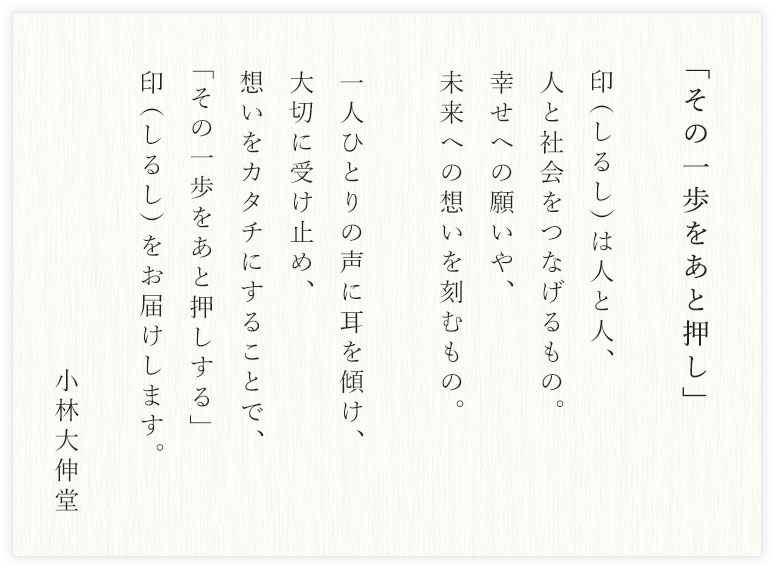 「その一歩をあと押し」
印(しるし)は人と人、
人と社会をつなげるもの。
幸せへの願いや、
未来への想いを刻むもの。
一人ひとりの声に耳を傾け、
大切に受け止め、
想いをカタチにすることで、
「その一歩をあと押しする」
印(しるし)をお届けします。
小林大伸堂